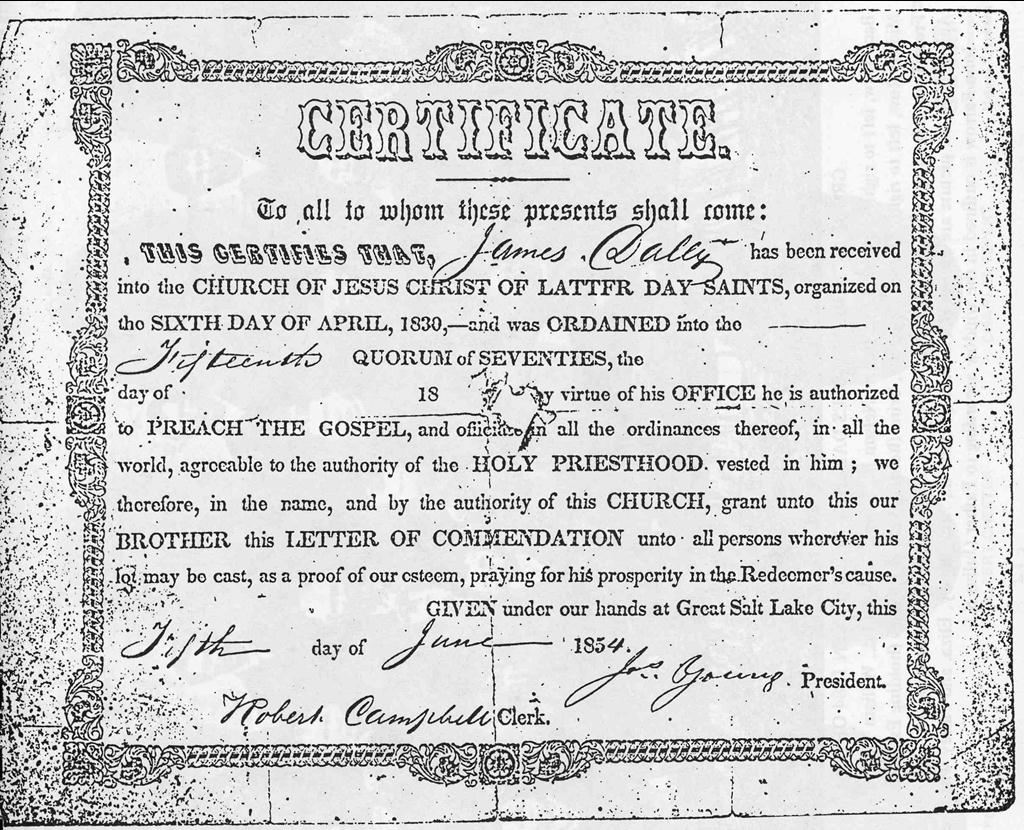 CERTIFICATE.
To all to whom these presents shall come:
THIS CERTIFIES THAT, James Dally has been received
into the CHURCH OF JESUS CHRIST OF LATTER DAY SAINTS, organized on
the SIXTH DAY OF APRIL, 1830,—and was ORDAINED into the
Fifteenth QUORUM of SEVENTIES, the
day of 18 by virtue of his OFFICE he is authorized
to PREACH THE GOSPEL, and officiate in all the ordinances thereof, in all the
world, agreeable to the authority of the HOLY PRIESTHOOD vested in him; we
therefore, in the name, and by the authority of this CHURCH, grant unto this our
BROTHER this LETTER OF COMMENDATION unto all persons wherever his
lot may be cast, as a proof of our esteem, praying for his prosperity in the Redeemer's cause.
GIVEN under our hands at Great Salt Lake City, this
Fifth day of June 1854.
Jos. Young. President.
Robert Campbell Clerk.